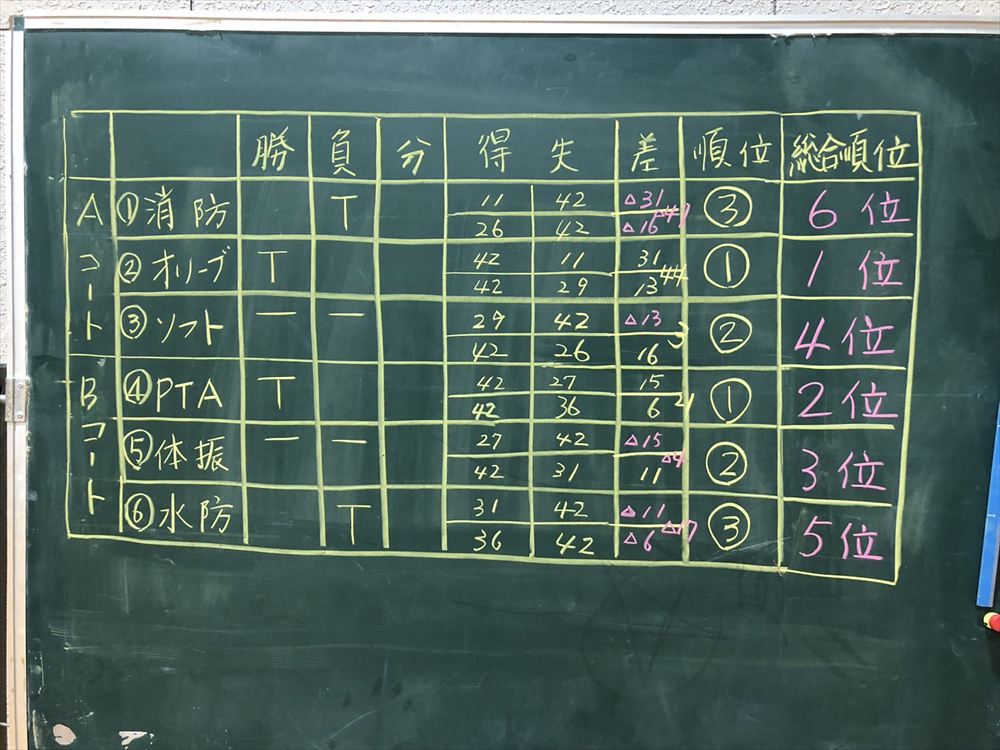 勝 負 分 得 失 差 順位 総合順位
Aコート ①消防 T 11 42 △31 △47 ③ 6位
26 42 △16
②オリーブ T 42 11 31 44 ① 1位
42 29 13
③ソフト 一 一 29 42 △13 3 ② 4位
42 26 16
Bコート ④PTA T 42 27 15 21 ① 2位
42 36 6
⑤体振 一 一 27 42 △15 △4 ② 3位
42 31 11
⑥水防 T 31 42 △11 △17 ③ 5位
36 42 △6